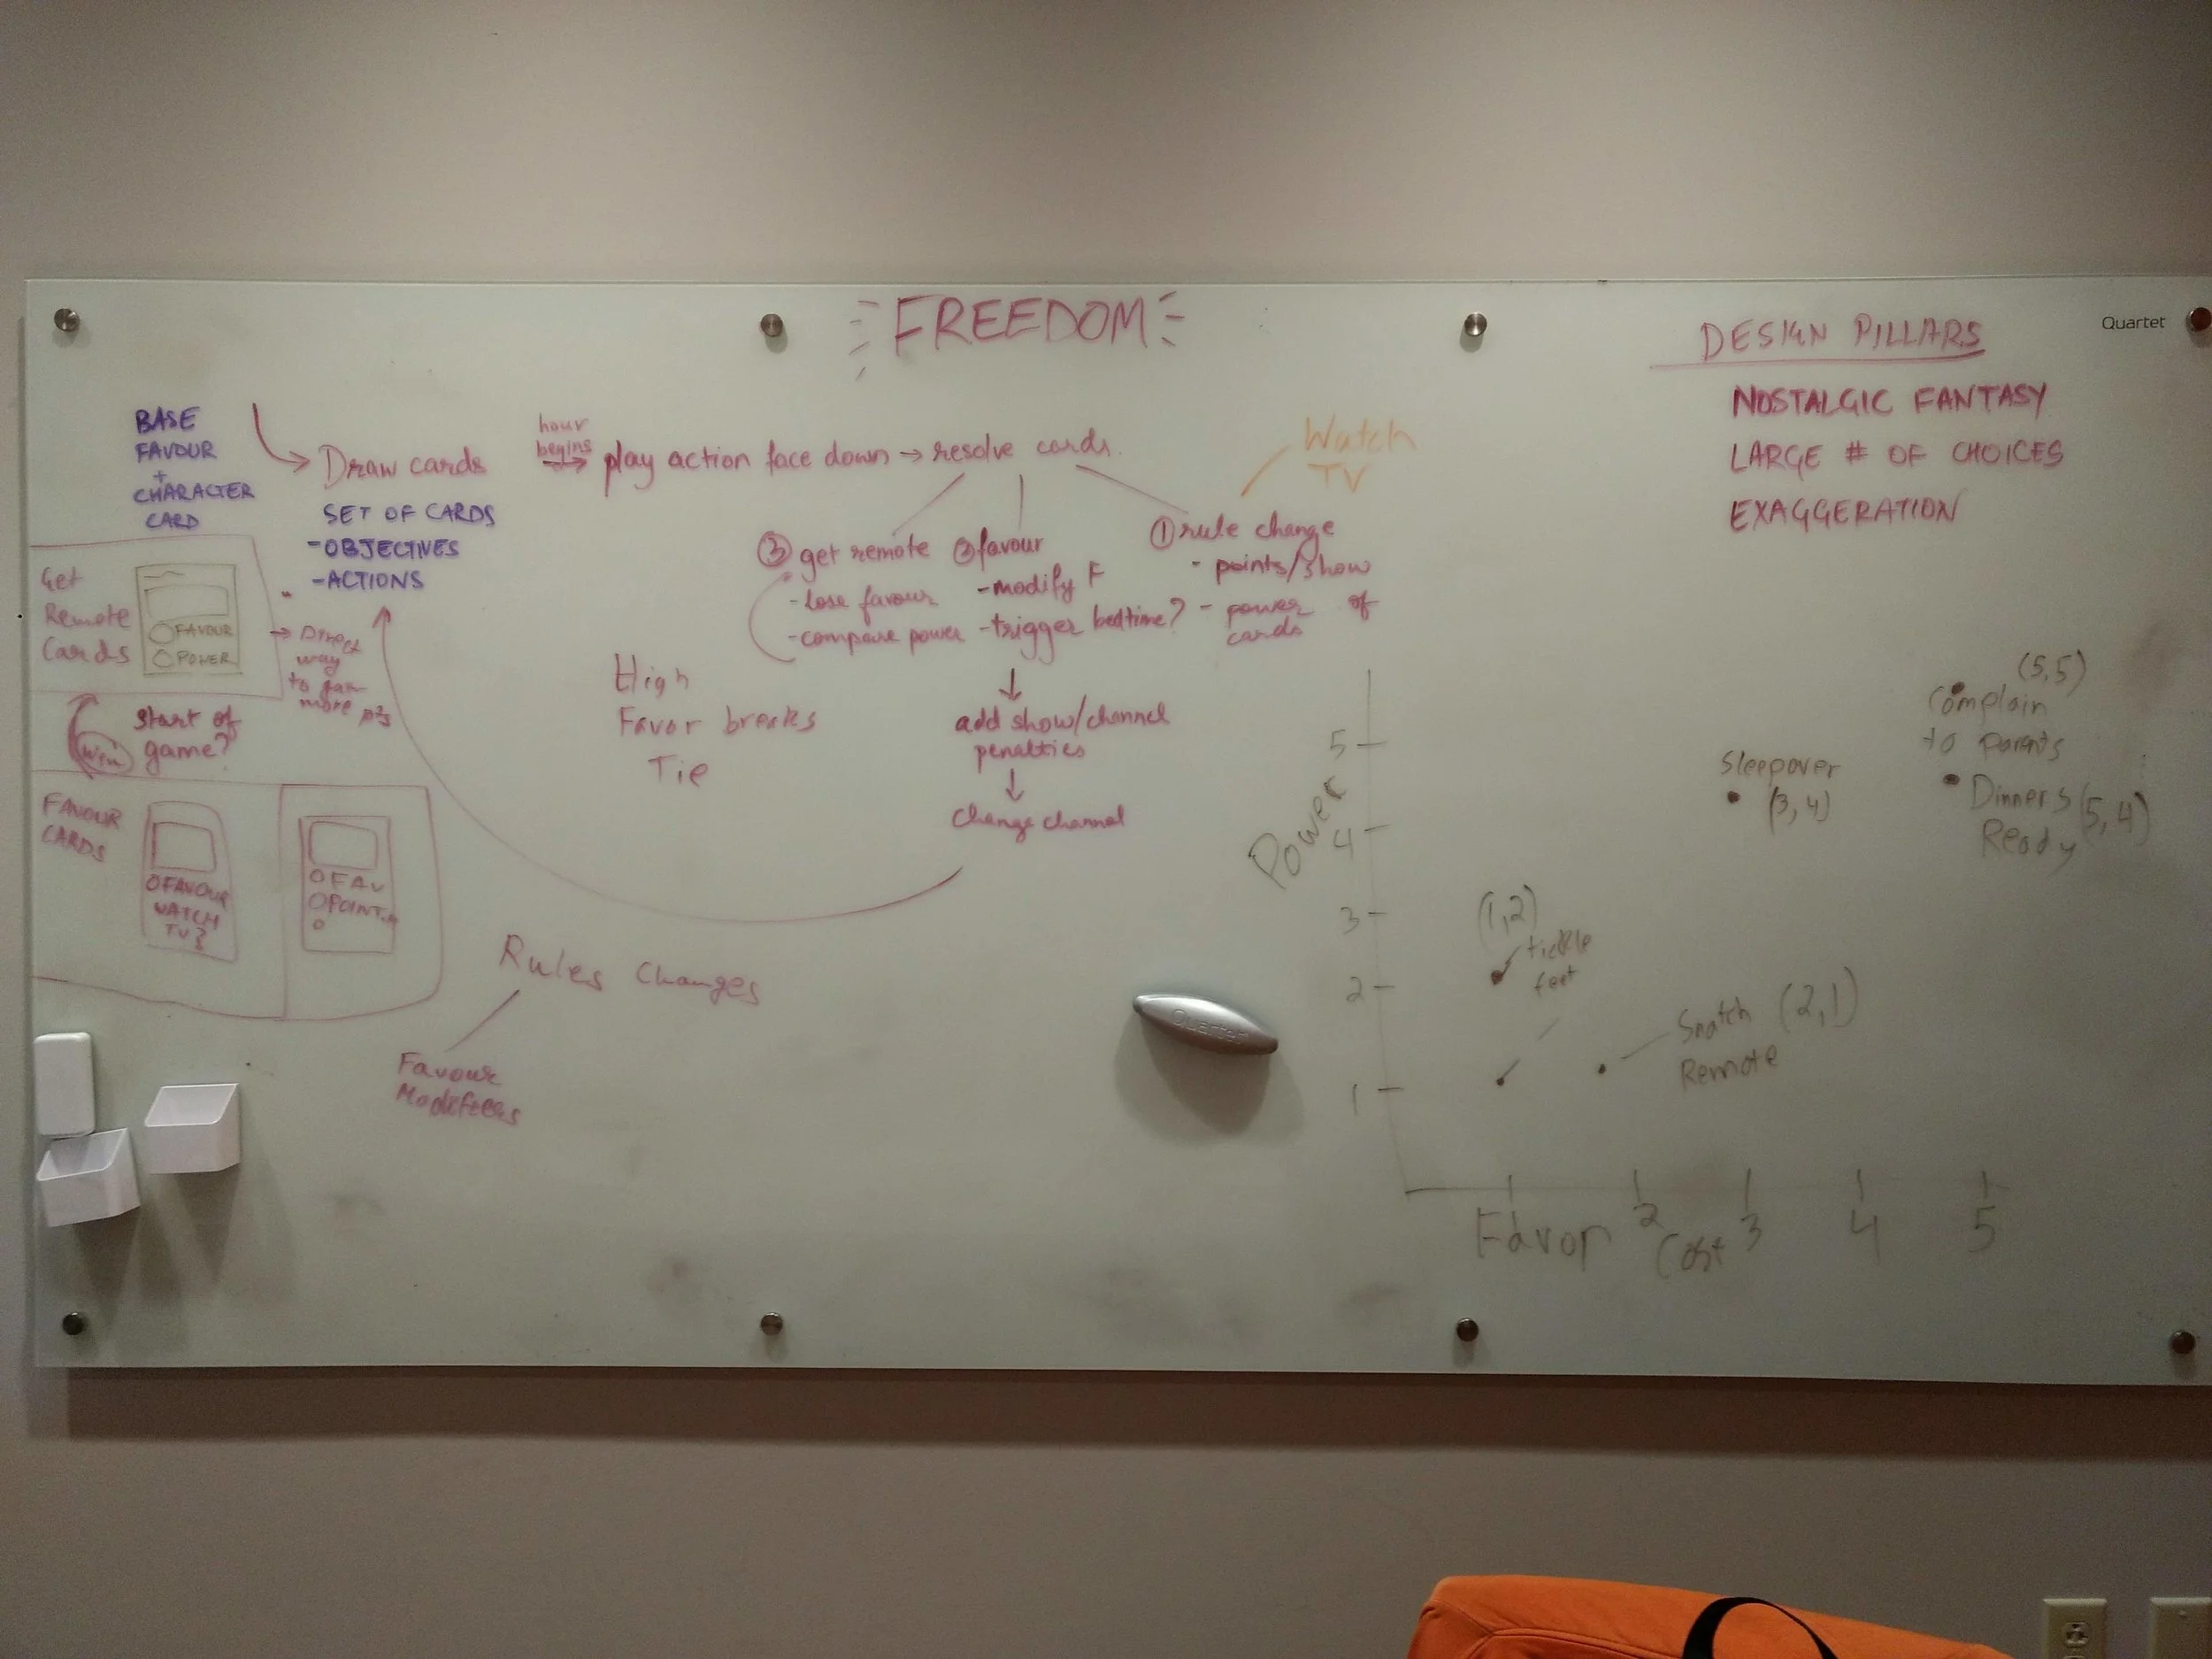 FREEDOM
Quartet
DESIGN PILLARS
NOSTALGIC FANTASY
LARGE # OF CHOICES
EXAGGERATION
BASE
FAVOUR
+
CHARACTER
CARD
Draw cards
SET OF CARDS
-OBJECTIVES
-ACTIONS
hour
begins
play action face down → resolve cards.
Watch
TV
③ get remote
- lose favour
- compare power
② favour
- modify F
- trigger bedtime?
① rule change
- points/show
- power of
cards
add show/channel
penalties
change channel
High
Favor breaks
Tie
Get
Remote
Cards
FAVOUR
POWER
→ Direct
way
to gain
more pts
start of
game?
Win
FAVOUR
CARDS
FAVOUR
WATCH
TV?
FAV
POINTS
Rules Changes
Favour
Modifiers
Quartet
Power
5
4
3
2
1
Favor Cost
2
3
4
5
(5,5)
Complain
to parents
Sleepover
(3,4)
Dinners (5,4)
Ready
(1,2)
tickle
feet
Snatch (2,1)
Remote